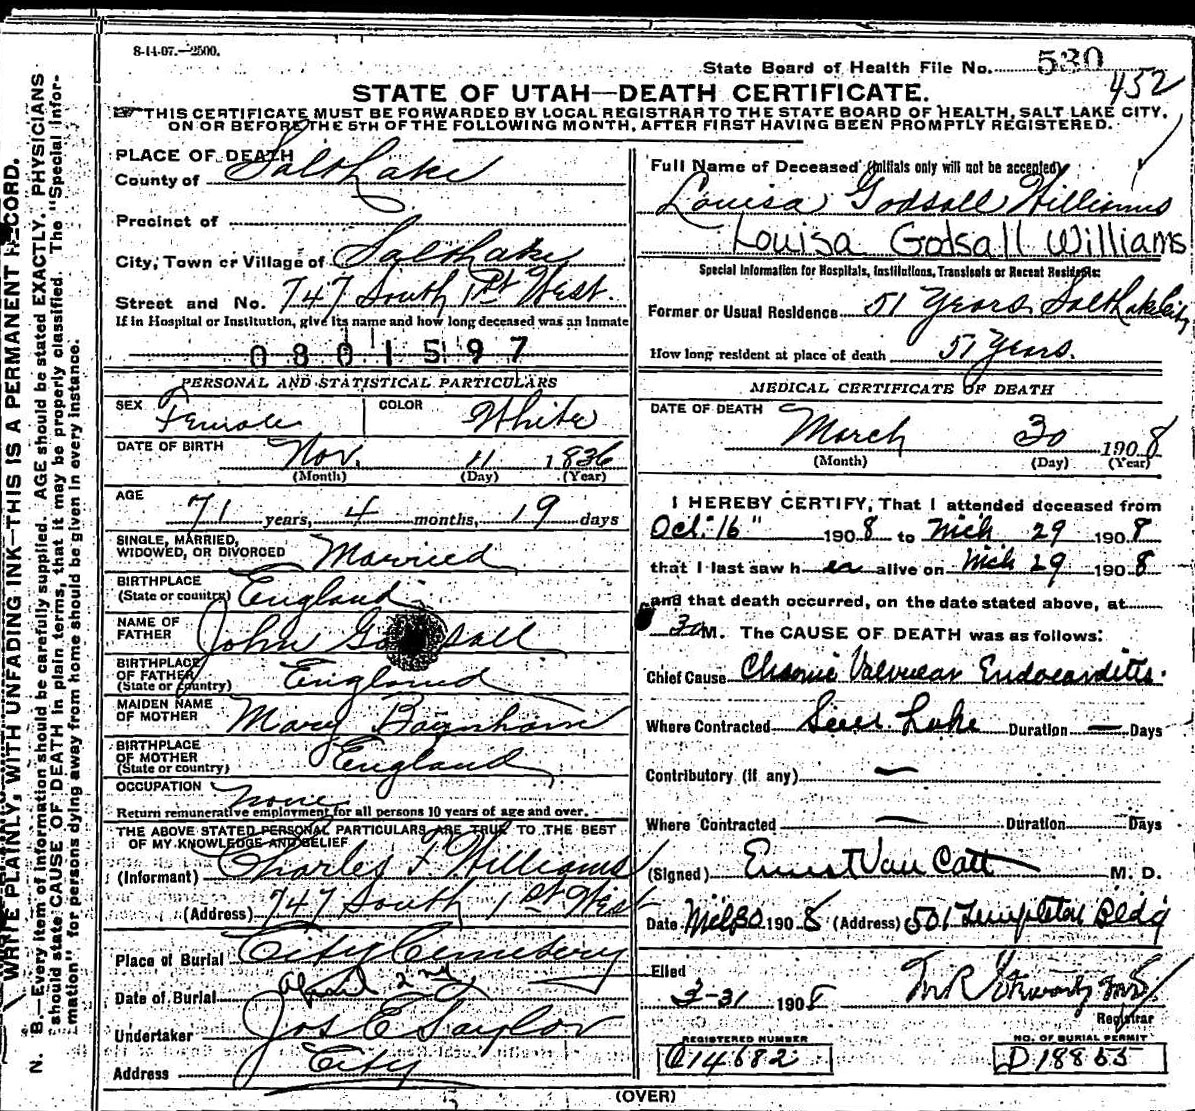 8-14-07.—2500.
State Board of Health File No. 530
452
STATE OF UTAH—DEATH CERTIFICATE.
THIS CERTIFICATE MUST BE FORWARDED BY LOCAL REGISTRAR TO THE STATE BOARD OF HEALTH, SALT LAKE CITY,
ON OR BEFORE THE 5TH OF THE FOLLOWING MONTH, AFTER FIRST HAVING BEEN PROMPTLY REGISTERED.
PLACE OF DEATH
County of Salt Lake
Precinct of
City, Town or Village of Salt Lake
Street and No. 747 South 1st West.
If in Hospital or Institution, give its name and how long deceased was an inmate
0801597
PERSONAL AND STATISTICAL PARTICULARS
SEX Female COLOR White
DATE OF BIRTH Nov. 11 1836
(Month) (Day) (Year)
AGE
71 years, 4 months, 19 days
SINGLE, MARRIED,
WIDOWED, OR DIVORCED Married
BIRTHPLACE
(State or country) England
NAME OF
FATHER John Godsall
BIRTHPLACE
OF FATHER
(State or country) England
MAIDEN NAME
OF MOTHER Mary
BIRTHPLACE
OF MOTHER
(State or country) England
OCCUPATION none
Return remunerative employment for all persons 10 years of age and over.
THE ABOVE STATED PERSONAL PARTICULARS ARE TRUE TO THE BEST
OF MY KNOWLEDGE AND BELIEF
(Informant) Charles F. Williams
(Address) 747 South 1st West
Place of Burial City Cemetery
Date of Burial April 2nd
Undertaker Jos E Taylor
Address City
Full Name of Deceased (Initials only will not be accepted)
Louisa Godsall Williams
Louisa Godsall Williams
Special Information for Hospitals, Institutions, Transients or Recent Residents:
Former or Usual Residence 51 Years Salt Lake City
How long resident at place of death 51 Years.
MEDICAL CERTIFICATE OF DEATH
DATE OF DEATH
March 30 1908
(Month) (Day) (Year)
I HEREBY CERTIFY, That I attended deceased from
Oct. 16" 1908 to Mch 29 1908
that I last saw her alive on Mch 29 1908
and that death occurred, on the date stated above, at
3 a M. The CAUSE OF DEATH was as follows:
Chief Cause Chronic Valvular Endocarditis.
Where Contracted Lake Duration — Days
Contributory (if any) —
Where Contracted — Duration Days
(Signed) Ernest Van Cott M. D.
Date Mch 30 1908 (Address) 501 Templeton Bldg
Filed
3-31 1908
Registrar
REGISTERED NUMBER
C14682
NO. OF BURIAL PERMIT
D18855
(OVER)
WRITE PLAINLY, WITH UNFADING INK—THIS IS A PERMANENT RECORD.
N. B.—Every item of information should be carefully supplied. AGE should be stated EXACTLY. PHYSICIANS
should state CAUSE OF DEATH in plain terms, that it may be properly classified. The "Special Infor-
mation" for persons dying away from home should be given in every instance.